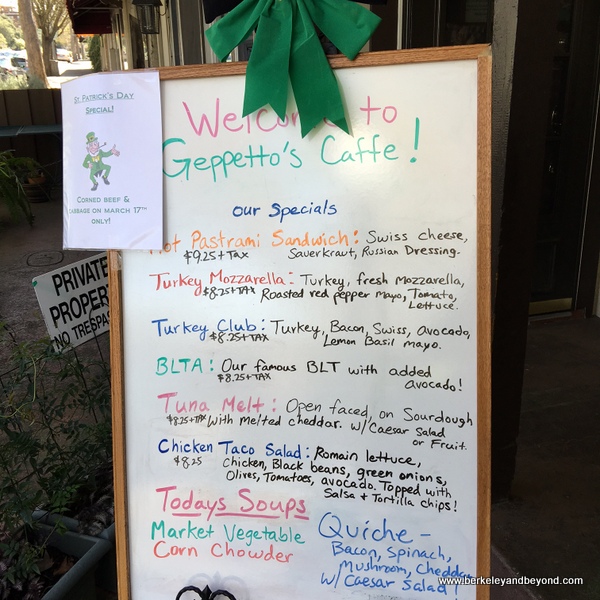 St. Patrick's Day
Special!
Corned beef &
cabbage on March 17th
only!
Private
Proper
No Trespas
Welcome to
Geppetto's Caffe!
our Specials
Hot Pastrami Sandwich: Swiss cheese,
$9.25 + TAX Sauerkraut, Russian Dressing.
Turkey Mozzarella: Turkey, fresh mozzarella,
$8.25+TAX Roasted red pepper mayo, Tomato,
Lettuce.
Turkey Club: Turkey, Bacon, Swiss, avocado,
$8.25+TAX Lemon Basil mayo.
BLTA: Our famous BLT with added
$8.25+TAX avocado!
Tuna Melt: Open faced, on Sourdough
$8.25+TAX with melted cheddar. w/Caesar Salad
or Fruit.
Chicken Taco Salad: Romain lettuce,
$8.25 Chicken, Black beans, green onions,
Olives, Tomatoes, avocado. Topped with
Salsa + Tortilla chips!
Todays Soups
Market Vegetable
Corn Chowder
Quiche -
Bacon, Spinach,
Mushroom, Cheddar
w/ Caesar Salad!
www.berkeleyandbeyond.com